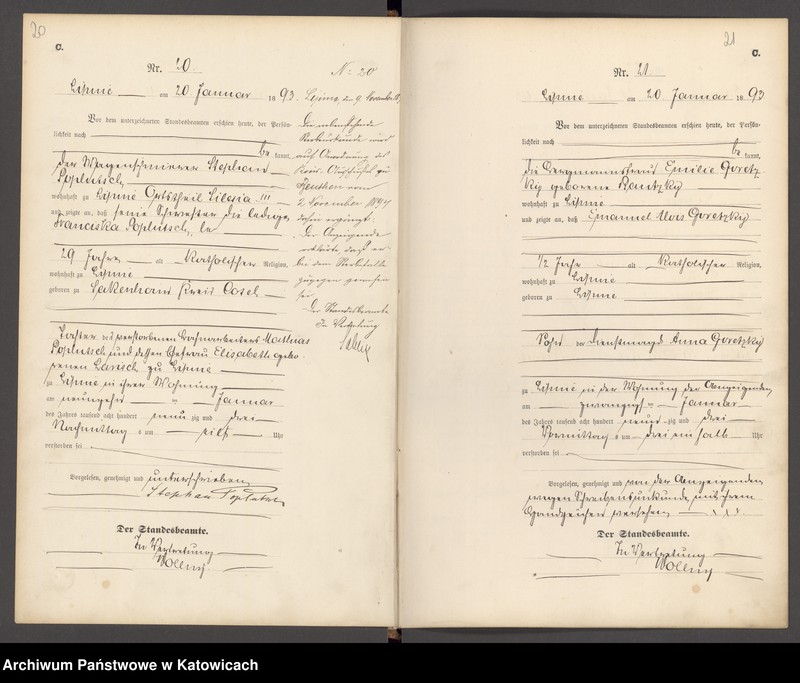 20
C.
Nr. 20
Lipine am 20 Januar 1893
Vor dem unterzeichneten Standesbeamten erschien heute, der Persön-
lichkeit nach
be kannt,
der Wagenschmierer Stephan
Poplutsch
wohnhaft zu Lipine Ortstheil Silesia III
und zeigte an, daß seine Schwester die ledige
Franciska Poplutsch
29 Jahre alt Katholischer Religion,
wohnhaft zu Lipine
geboren zu Lakenhans Kreis Cosel
Tochter des verstorbenen Mathias
Poplutsch und dessen Ehefrau Elisabeth gebo-
renen Larisch zu Lipine
zu Lipine in ihrer Wohnung
am neunzehn ten Januar
des Jahres tausend acht hundert neun zig und drei
Nachmittag s um eilf Uhr
verstorben sei
Vorgelesen, genehmigt und unterschrieben
Stephan Poplutsch
Der Standesbeamte.
In Vertretung
Wollny
No 20
Lipine, den 9. November
Die nebenstehende
Sterbeurkunde wird
auf Anordnung des
Beuthen vom
2 November 1894
dahin ergänzt:
Der Anzeigende
erklärte, daß er
bei dem Sterbefalle
zugegen gewesen
sei
Der Standesbeamte
In Vertretung
21
C.
Nr. 21
Lipine am 20 Januar 1893
Vor dem unterzeichneten Standesbeamten erschien heute, der Persön-
lichkeit nach
be kannt,
die Bergmannsfrau Emilie Goretz-
ky geborene Kautzky
wohnhaft zu Lipine
und zeigte an, daß Emanuel Alois Goretzky
1/2 Jahr alt Katholischer Religion,
wohnhaft zu Lipine
geboren zu Lipine
Sohn der Dienstmagd Anna Goretzky
zu Lipine in der Wohnung der Anzeigenden
am zwanzigs ten Januar
des Jahres tausend acht hundert neun zig und drei
Vormittag s um drei ein halb Uhr
verstorben sei
Vorgelesen, genehmigt und von der Anzeigenden
wegen Schreibensunkunde mit ihrem
Handzeichen versehen
Der Standesbeamte.
In Vertretung
Wollny
Archiwum Państwowe w Katowicach